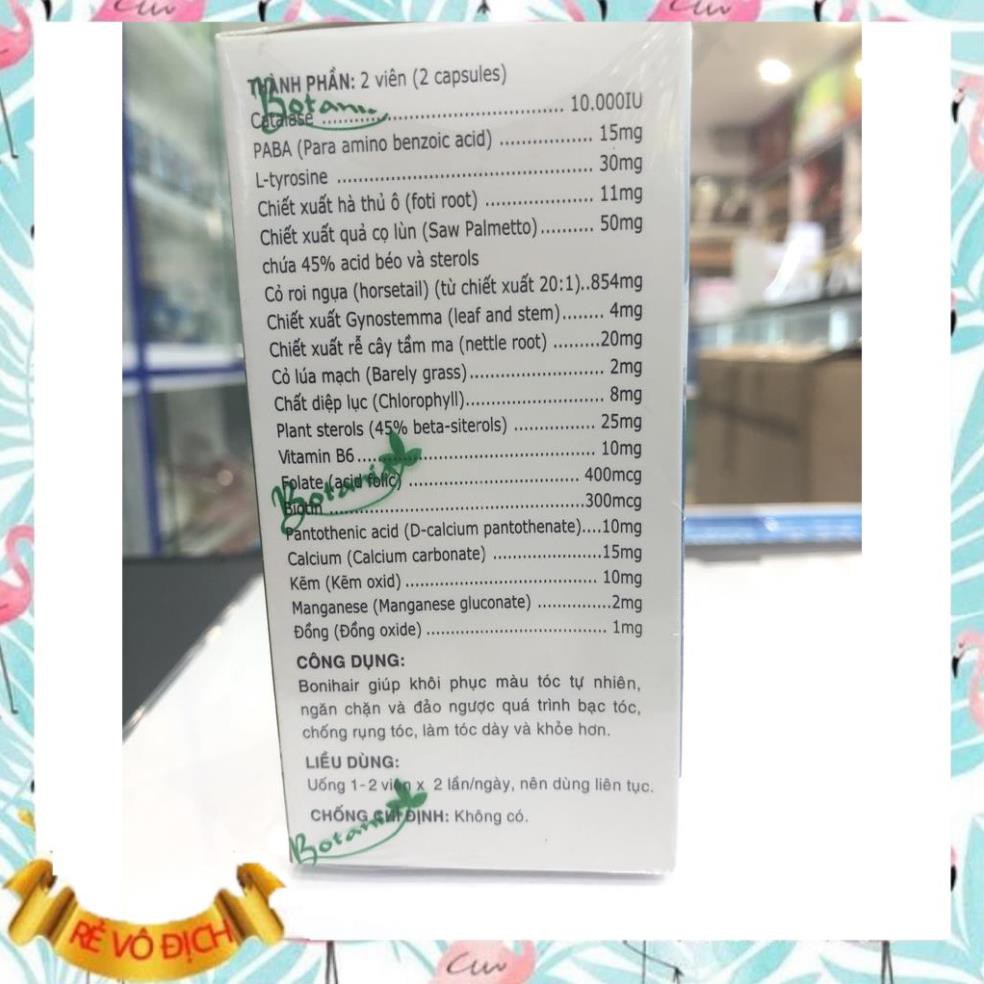 THÀNH PHẦN: 2 viên (2 capsules)
Catalase ........................................ 10.000IU
PABA (Para amino benzoic acid) ................ 15mg
L-tyrosine ............................................ 30mg
Chiết xuất hà thủ ô (foti root) .................... 11mg
Chiết xuất quả cọ lùn (Saw Palmetto).......... 50mg
chứa 45% acid béo và sterols
Cỏ roi ngựa (horsetail) (từ chiết xuất 20:1)..854mg
Chiết xuất Gynostemma (leaf and stem)........ 4mg
Chiết xuất rễ cây tầm ma (nettle root) .........20mg
Cỏ lúa mạch (Barely grass)......................... 2mg
Chất diệp lục (Chlorophyll)......................... 8mg
Plant sterols (45% beta-siterols) ................ 25mg
Vitamin B6............................................. 10mg
Folate (acid folic) ................................ 400mcg
Biotin ................................................300mcg
Pantothenic acid (D-calcium pantothenate)....10mg
Calcium (Calcium carbonate) .....................15mg
Kẽm (Kẽm oxid) ..................................... 10mg
Manganese (Manganese gluconate) ..............2mg
Đồng (Đồng oxide) .................................. 1mg
CÔNG DỤNG:
Bonihair giúp khôi phục màu tóc tự nhiên,
ngăn chặn và đảo ngược quá trình bạc tóc,
chống rụng tóc, làm tóc dày và khỏe hơn.
LIỀU DÙNG:
Uống 1-2 viên x 2 lần/ngày, nên dùng liên tục.
CHỐNG CHỈ ĐỊNH: Không có.
Botanist
Botanist
RẺ VÔ ĐỊCH